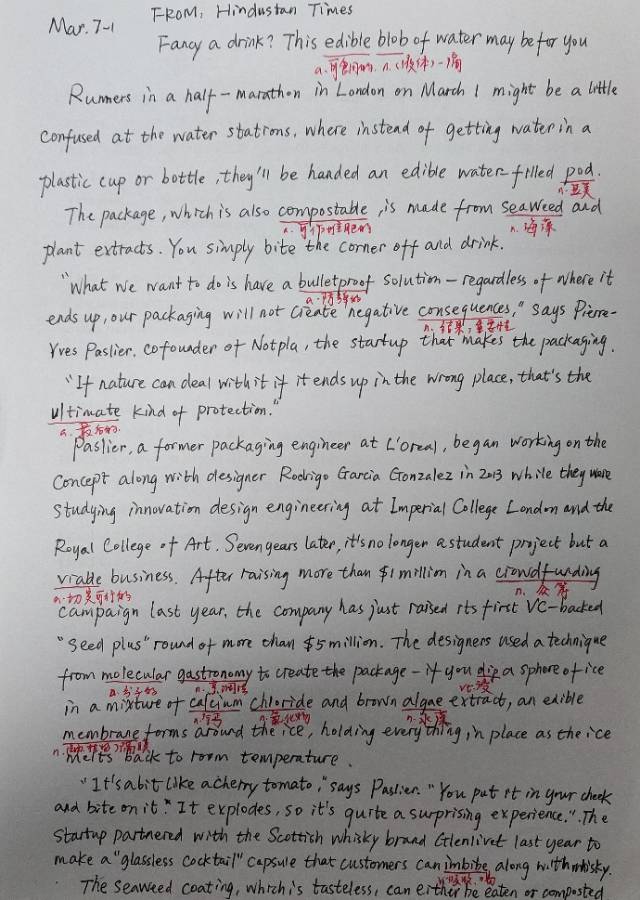 Mar. 7-1
FROM: Hindustan Times
Fancy a drink? This edible blob of water may be for you
a.可食用的. n.(液体)一滴
Runners in a half-marathon in London on March 1 might be a little
confused at the water stations, where instead of getting water in a
plastic cup or bottle, they'll be handed an edible water-filled pod.
n.豆荚
The package, which is also compostable, is made from seaweed and
n.海藻
plant extracts. You simply bite the corner off and drink.
"What we want to do is have a bulletproof solution - regardless of where it
a.防弹的
ends up, our packaging will not create negative consequences," says Pierre-
n.结果;重要性
Yves Paslier, cofounder of Notpla, the startup that makes the packaging.
"If nature can deal with it if it ends up in the wrong place, that's the
ultimate kind of protection."
a.最后的.
Paslier, a former packaging engineer at L'Oreal, began working on the
concept along with designer Rodrigo Garcia Gonzalez in 2013 while they were
studying innovation design engineering at Imperial College London and the
Royal College of Art. Seven years later, it's no longer a student project but a
viable business. After raising more than $1 million in a crowdfunding
a.切实可行的 n.众筹
campaign last year, the company has just raised its first VC-backed
"seed plus" round of more than $5 million. The designers used a technique
from molecular gastronomy to create the package - if you dip a sphere of ice
a.分子的 n.烹调法 vt.浸
in a mixture of calcium chloride and brown algae extract, an edible
n.钙 n.氯化物 n.水藻
membrane forms around the ice, holding everything in place as the ice
melts back to room temperature.
"It's a bit like a cherry tomato," says Paslier. "You put it in your cheek
and bite on it." It explodes, so it's quite a surprising experience.". The
startup partnered with the Scottish whisky brand Glenlivet last year to
make a "glassless cocktail" capsule that customers can imbibe along with whisky.
The seaweed coating, which is tasteless, can either be eaten or composted